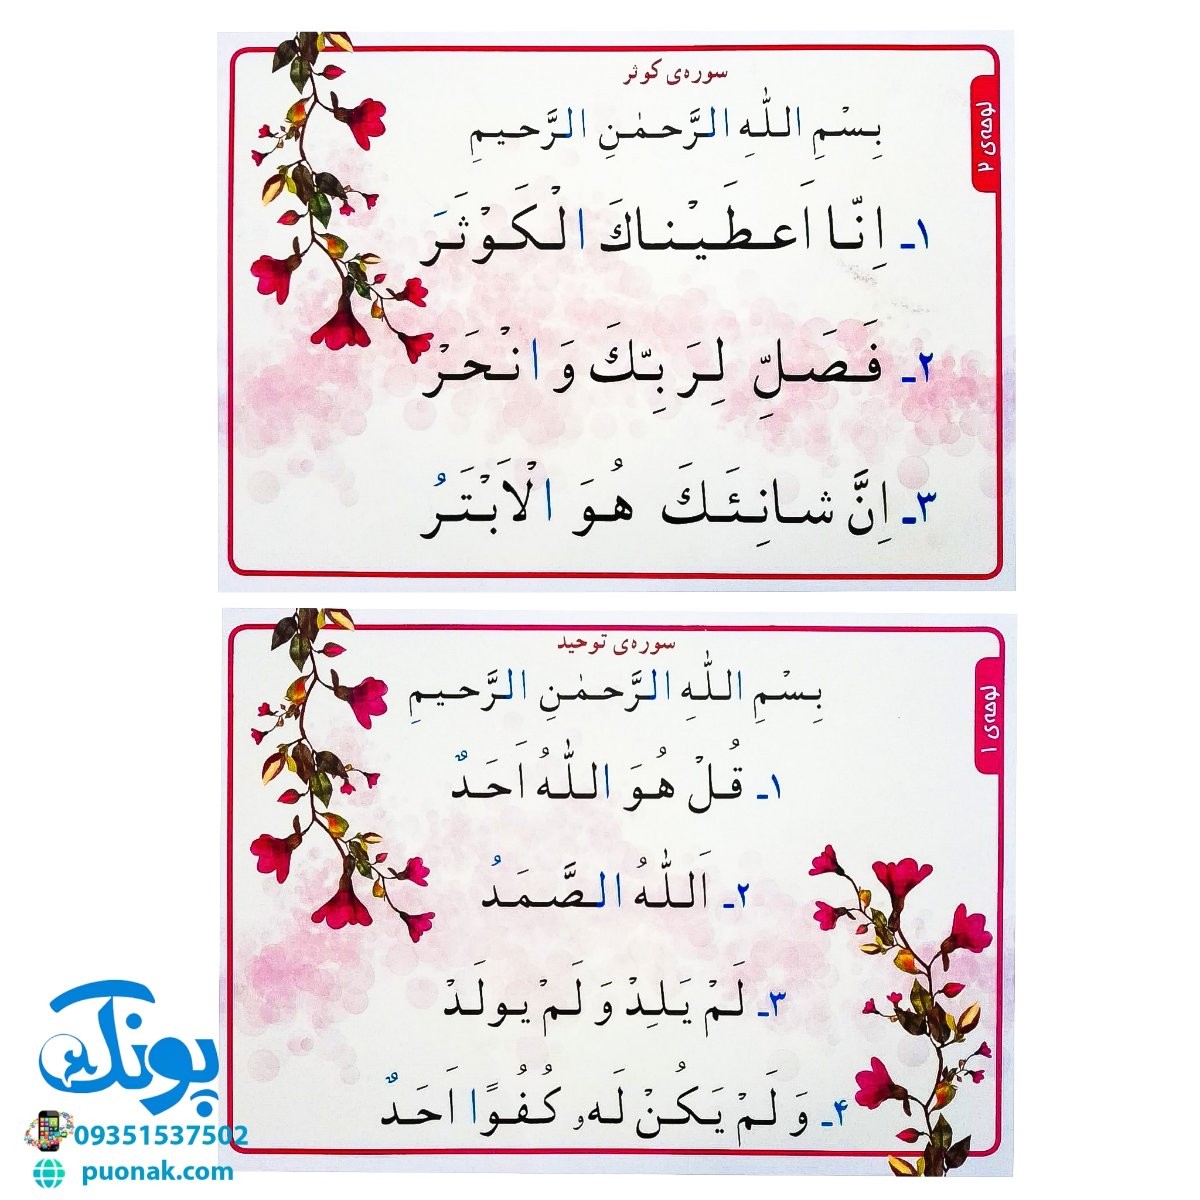 سوره‌ی کوثر
لوحه‌ی ۲
بِسْمِ اللّٰهِ الرَّحمٰنِ الرَّحیمِ
۱ـ اِنّا اَعطَیْناکَ الْکَوْثَرَ
۲ـ فَصَلِّ لِرَبِّکَ وَ انْحَرْ
۳ـ اِنَّ شانِئَکَ هُوَ الْاَبْتَرُ
سوره‌ی توحید
لوحه‌ی ۱
بِسْمِ اللّٰهِ الرَّحمٰنِ الرَّحیمِ
۱ـ قُلْ هُوَ اللّٰهُ اَحَدٌ
۲ـ اَللّٰهُ الصَّمَدُ
۳ـ لَمْ یَلِدْ وَ لَمْ یولَدْ
۴ـ وَ لَمْ یَکُنْ لَهو کُفُوًا اَحَدٌ
پونک
09351537502
puonak.com